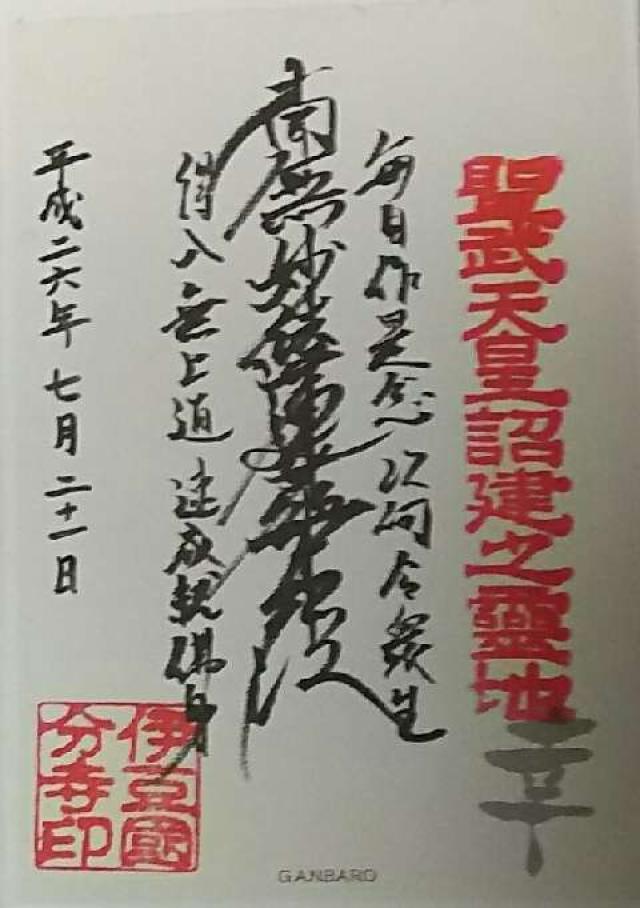 聖武天皇詔建之靈地
毎日作是念 以何令衆生
南無妙法蓮華経
得入無上道 速成就佛身
平成二六年七月二十一日
伊豆國
分寺印
GANBARO